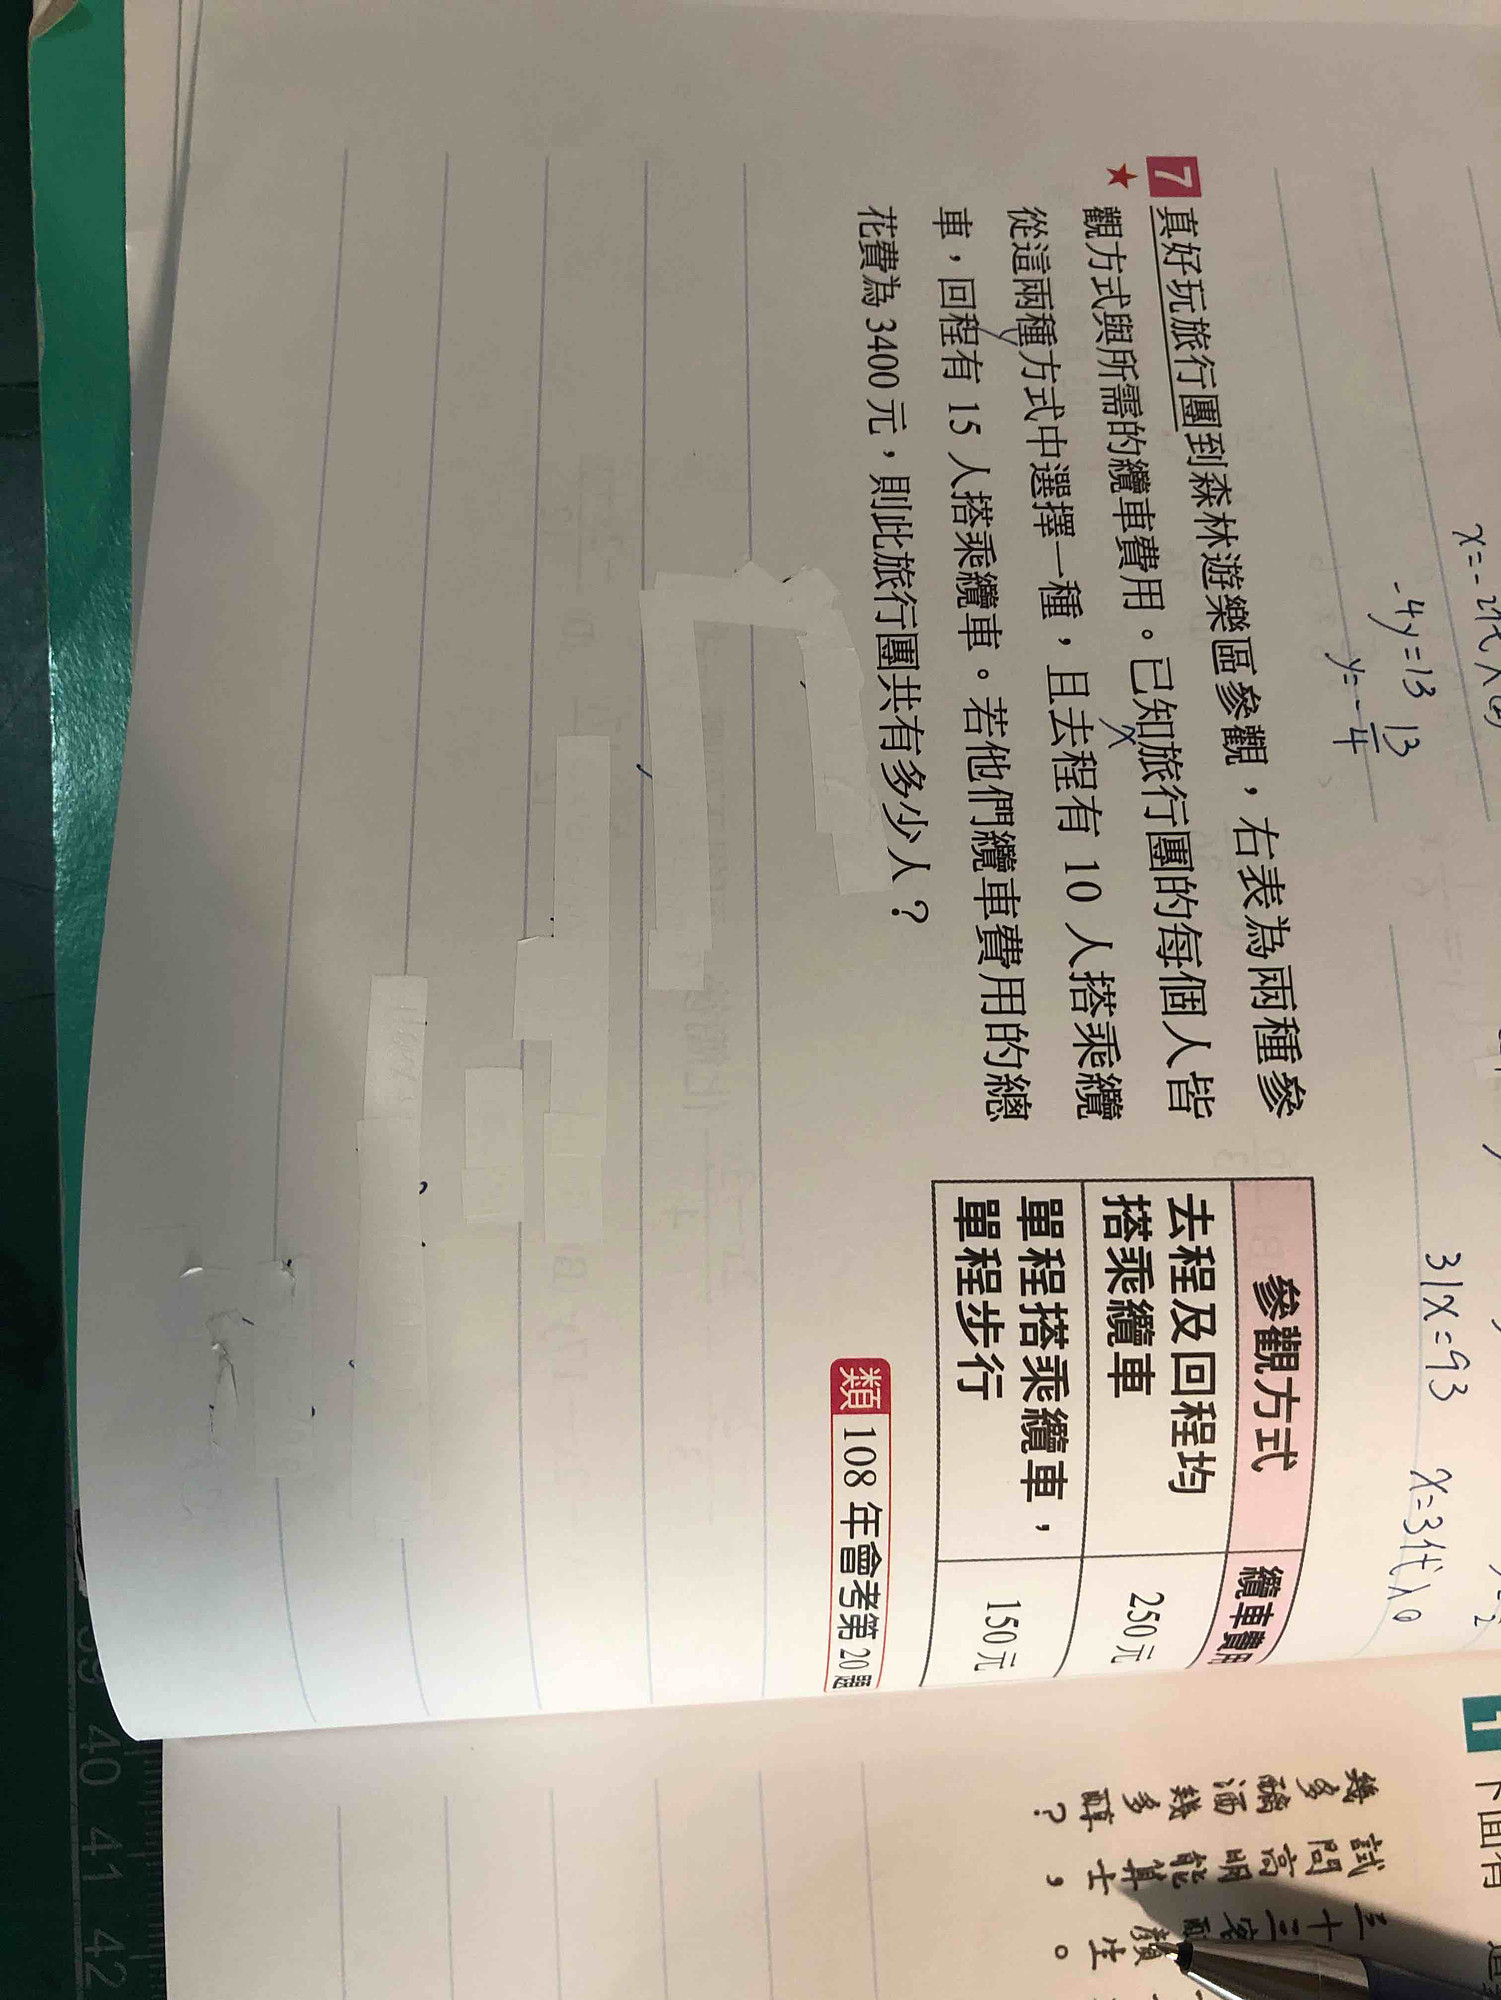 x=-2代入(2)
-4y=13
y=-13/4
31x=93
x=3代入①
7 真好玩旅行團到森林遊樂區參觀，右表為兩種參
★ 觀方式與所需的纜車費用。已知旅行團的每個人皆
從這兩種方式中選擇一種，且去程有 10 人搭乘纜
車，回程有 15 人搭乘纜車。若他們纜車費用的總
花費為 3400 元，則此旅行團共有多少人？
參觀方式 纜車費用
去程及回程均
搭乘纜車 250元
單程搭乘纜車，
單程步行 150元
類 108 年會考第 20 題
x
y
1 下面有
三十三客
顏生。
試問高明能算士，
幾多醨酒幾多醇？
39 40 41 42